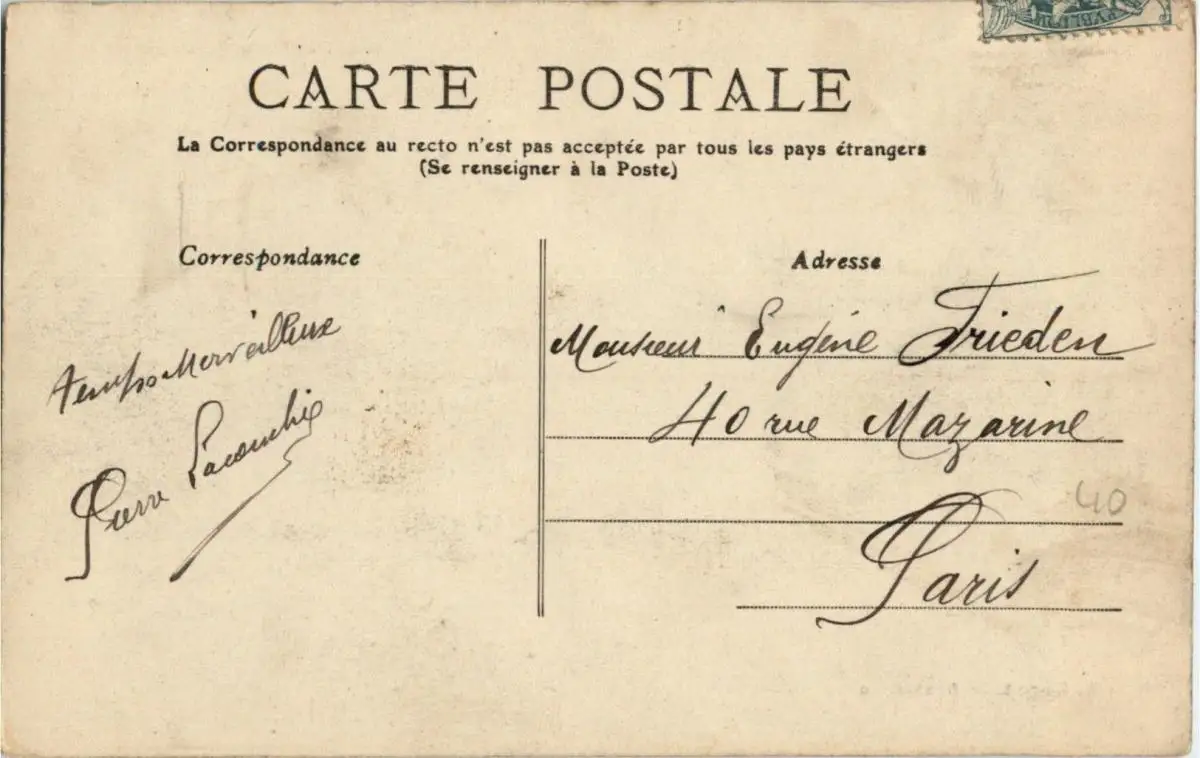 CARTE POSTALE
La Correspondance au recto n'est pas acceptée par tous les pays étrangers
(Se renseigner à la Poste)
Correspondance
temps Merveilleux
Pierre
Adresse
Monsieur Eugène Frieden
40 rue Mazarine
40
Paris